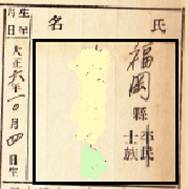 氏名
福岡縣
平民
士族
生年
月日
大正六年一〇月四日生